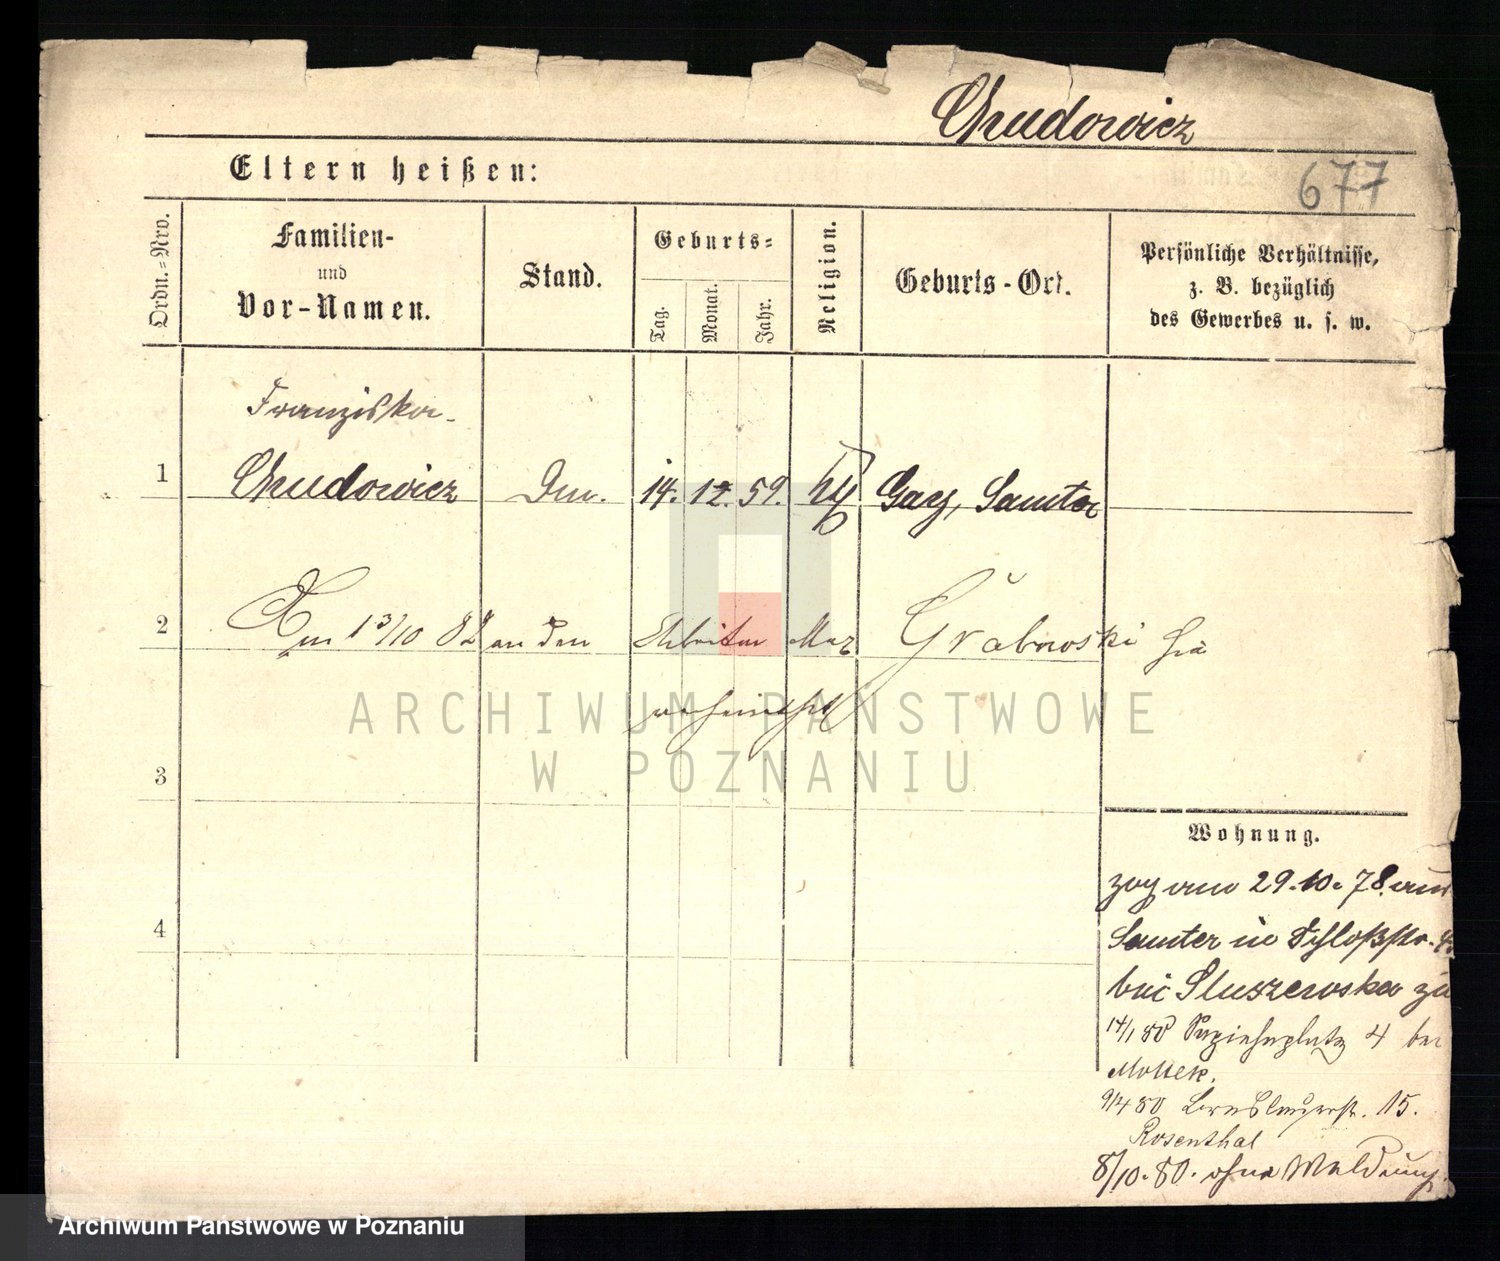 Chudowicz
Eltern heißen:
677
Ordn.-Nro.
Familien-
und
Vor-Namen.
Stand.
Geburts-
Tag.
Monat.
Jahr.
Religion.
Geburts-Ort.
Persönliche Verhältnisse,
z. B. bezüglich
des Gewerbes u. s. w.
Franziska
1 Chudowicz 14. 12. 59. Gay, Samter
2 Am 13/10 82 an den Arbeiter Grabowski hier
verheirathet
3
4
Wohnung.
zog am 29.10.78 aus
Samter in Schloßstr. 4
bei Sluszewska zu
14/1 80 Sapiehaplatz 4 bei
Mottek.
9/4 80 15.
Rosenthal
8/10.80. ohne Meldung
ARCHIWUM PAŃSTWOWE
W POZNANIU
Archiwum Państwowe w Poznaniu